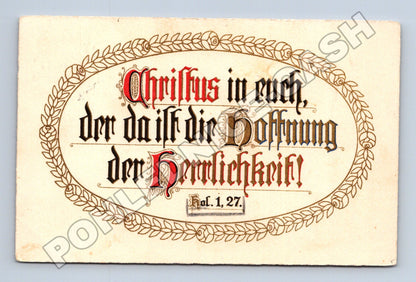 Christus in euch,
der da ist die Hoffnung
der Herrlichkeit!
Kol. 1, 27.